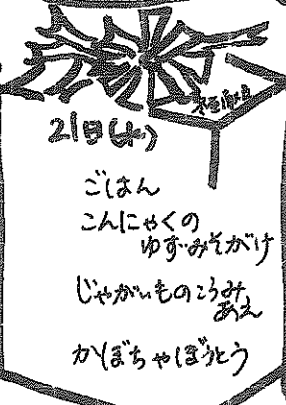 21日
ごはん
こんにゃくの
ゆずみそがけ
じゃがいもの
あえ
かぼちゃぼうとう